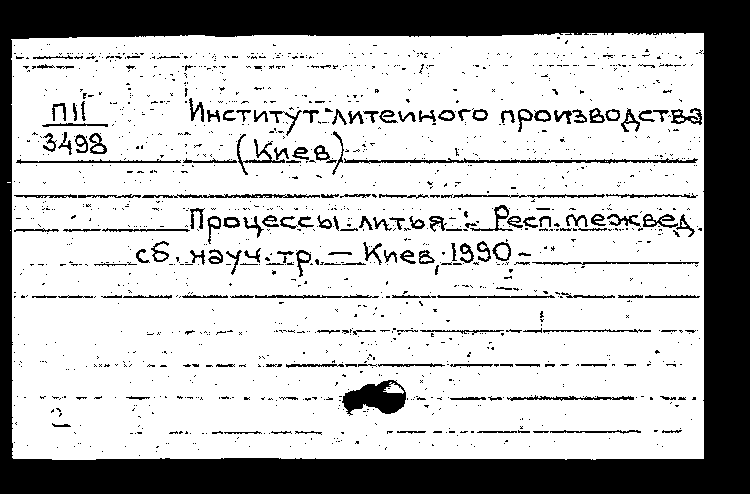 ПII Институт литейного производства
3498 (Киев)
Процессы литья : Респ. межвед.
сб. науч. тр. — Киев, 1990 -